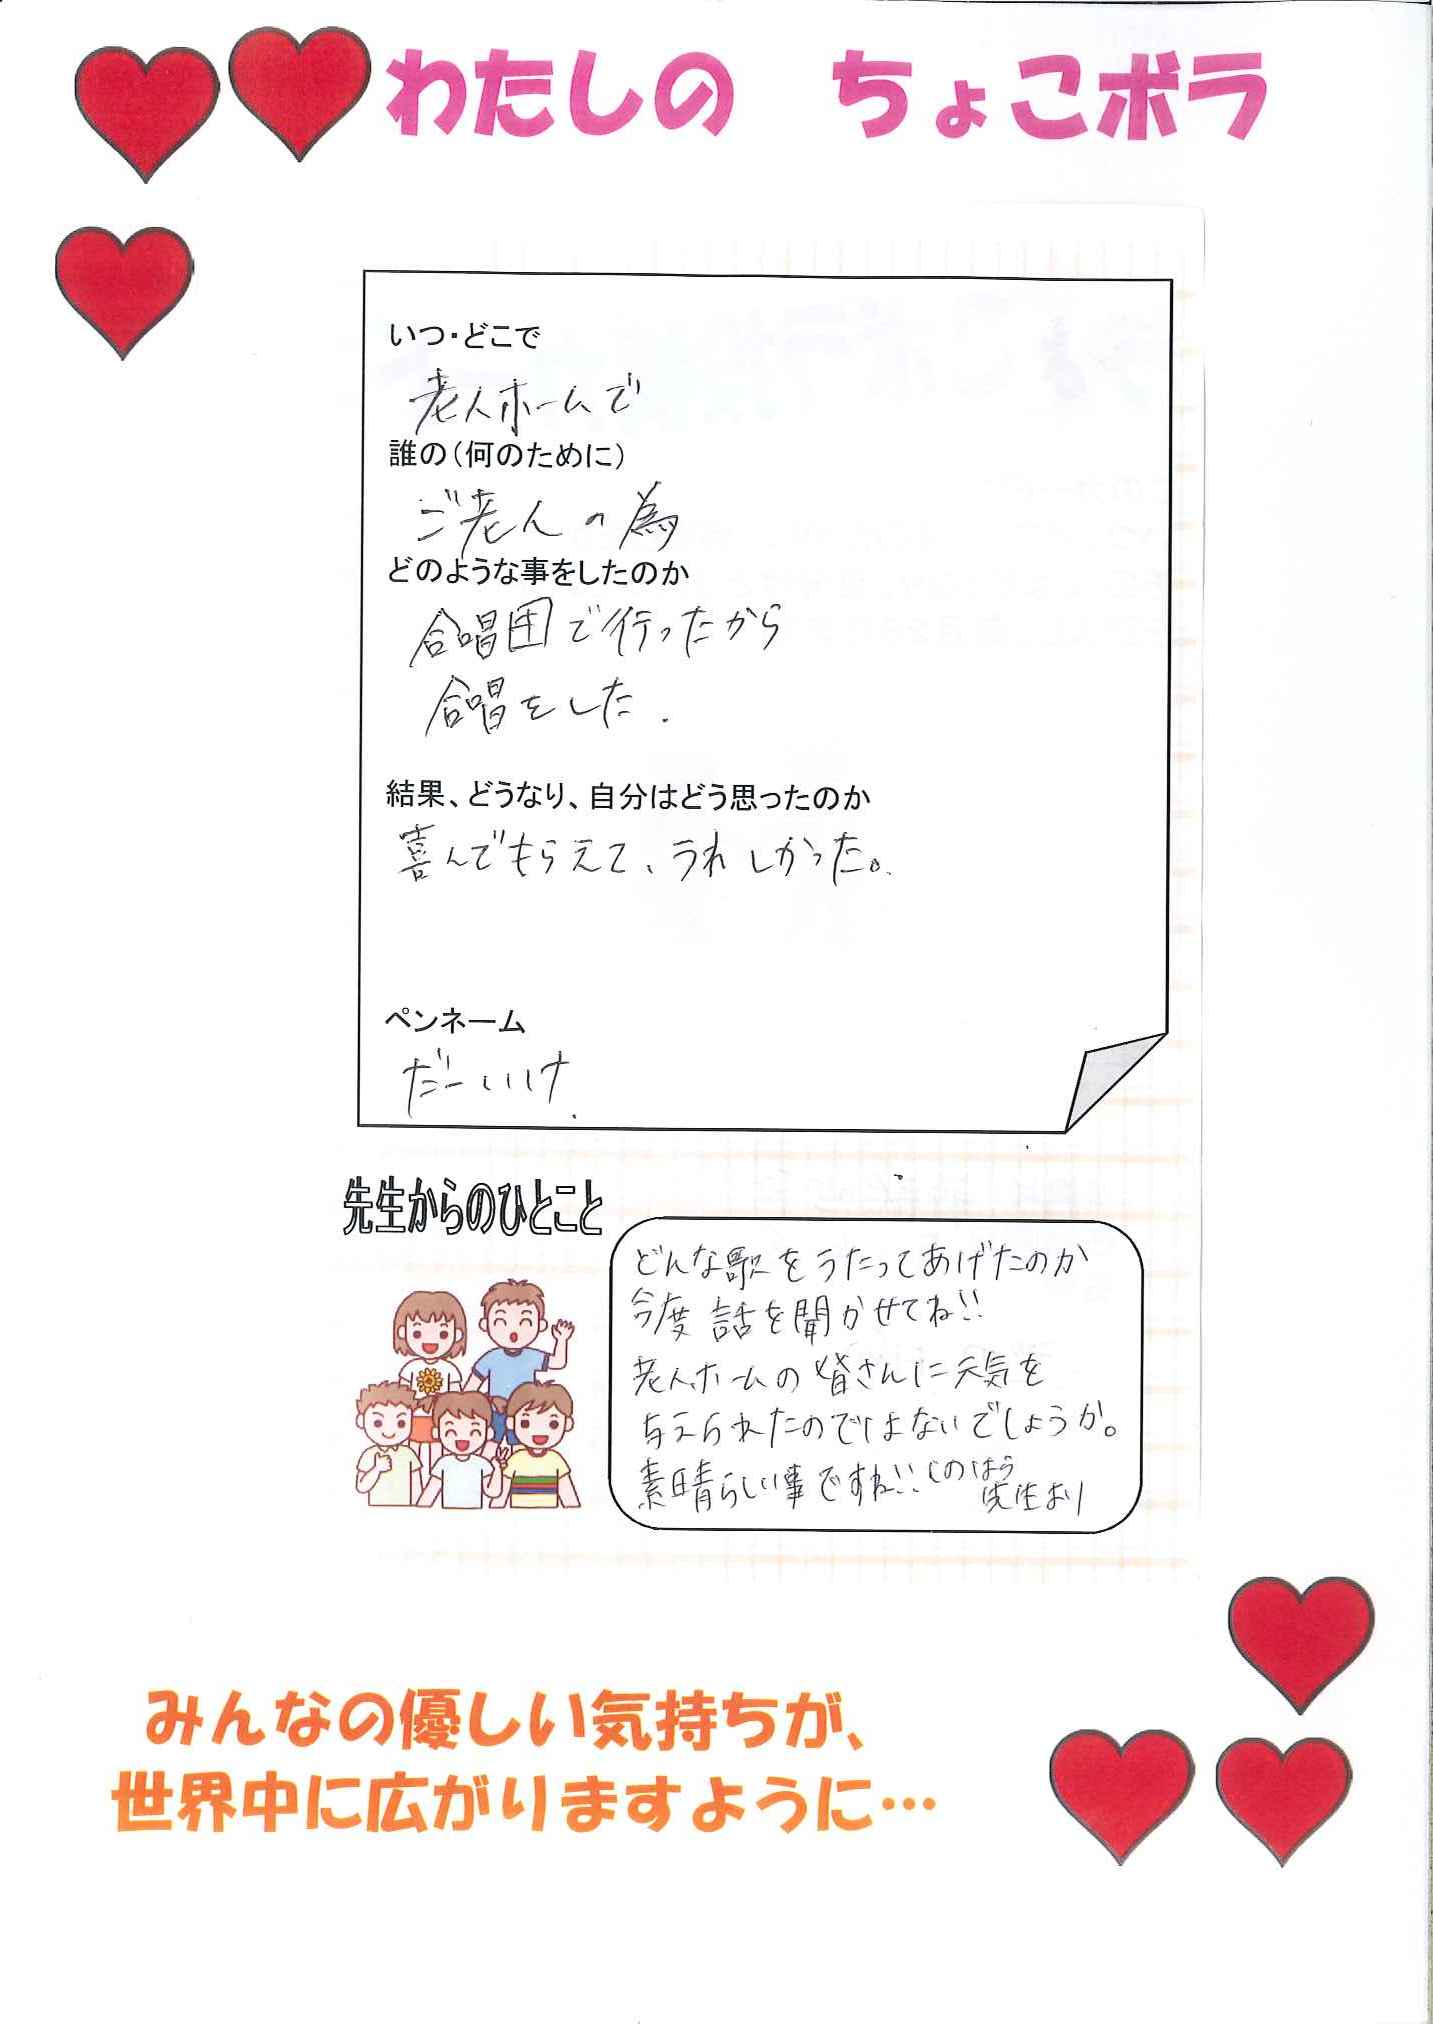 わたしの ちょこボラ
いつ・どこで
老人ホームで
誰の(何のために)
ご老人の為
どのような事をしたのか
合唱団で行ったから
合唱をした.
結果、どうなり、自分はどう思ったのか
喜んでもらえて、うれしかった。
ペンネーム
だーいけ
先生からのひとこと
どんな歌をうたってあげたのか
今度話を聞かせてね!!
老人ホームの皆さんに元気を
与えられたのではないでしょうか。
素晴らしい事ですね!! しのはら
先生より
みんなの優しい気持ちが、
世界中に広がりますように…